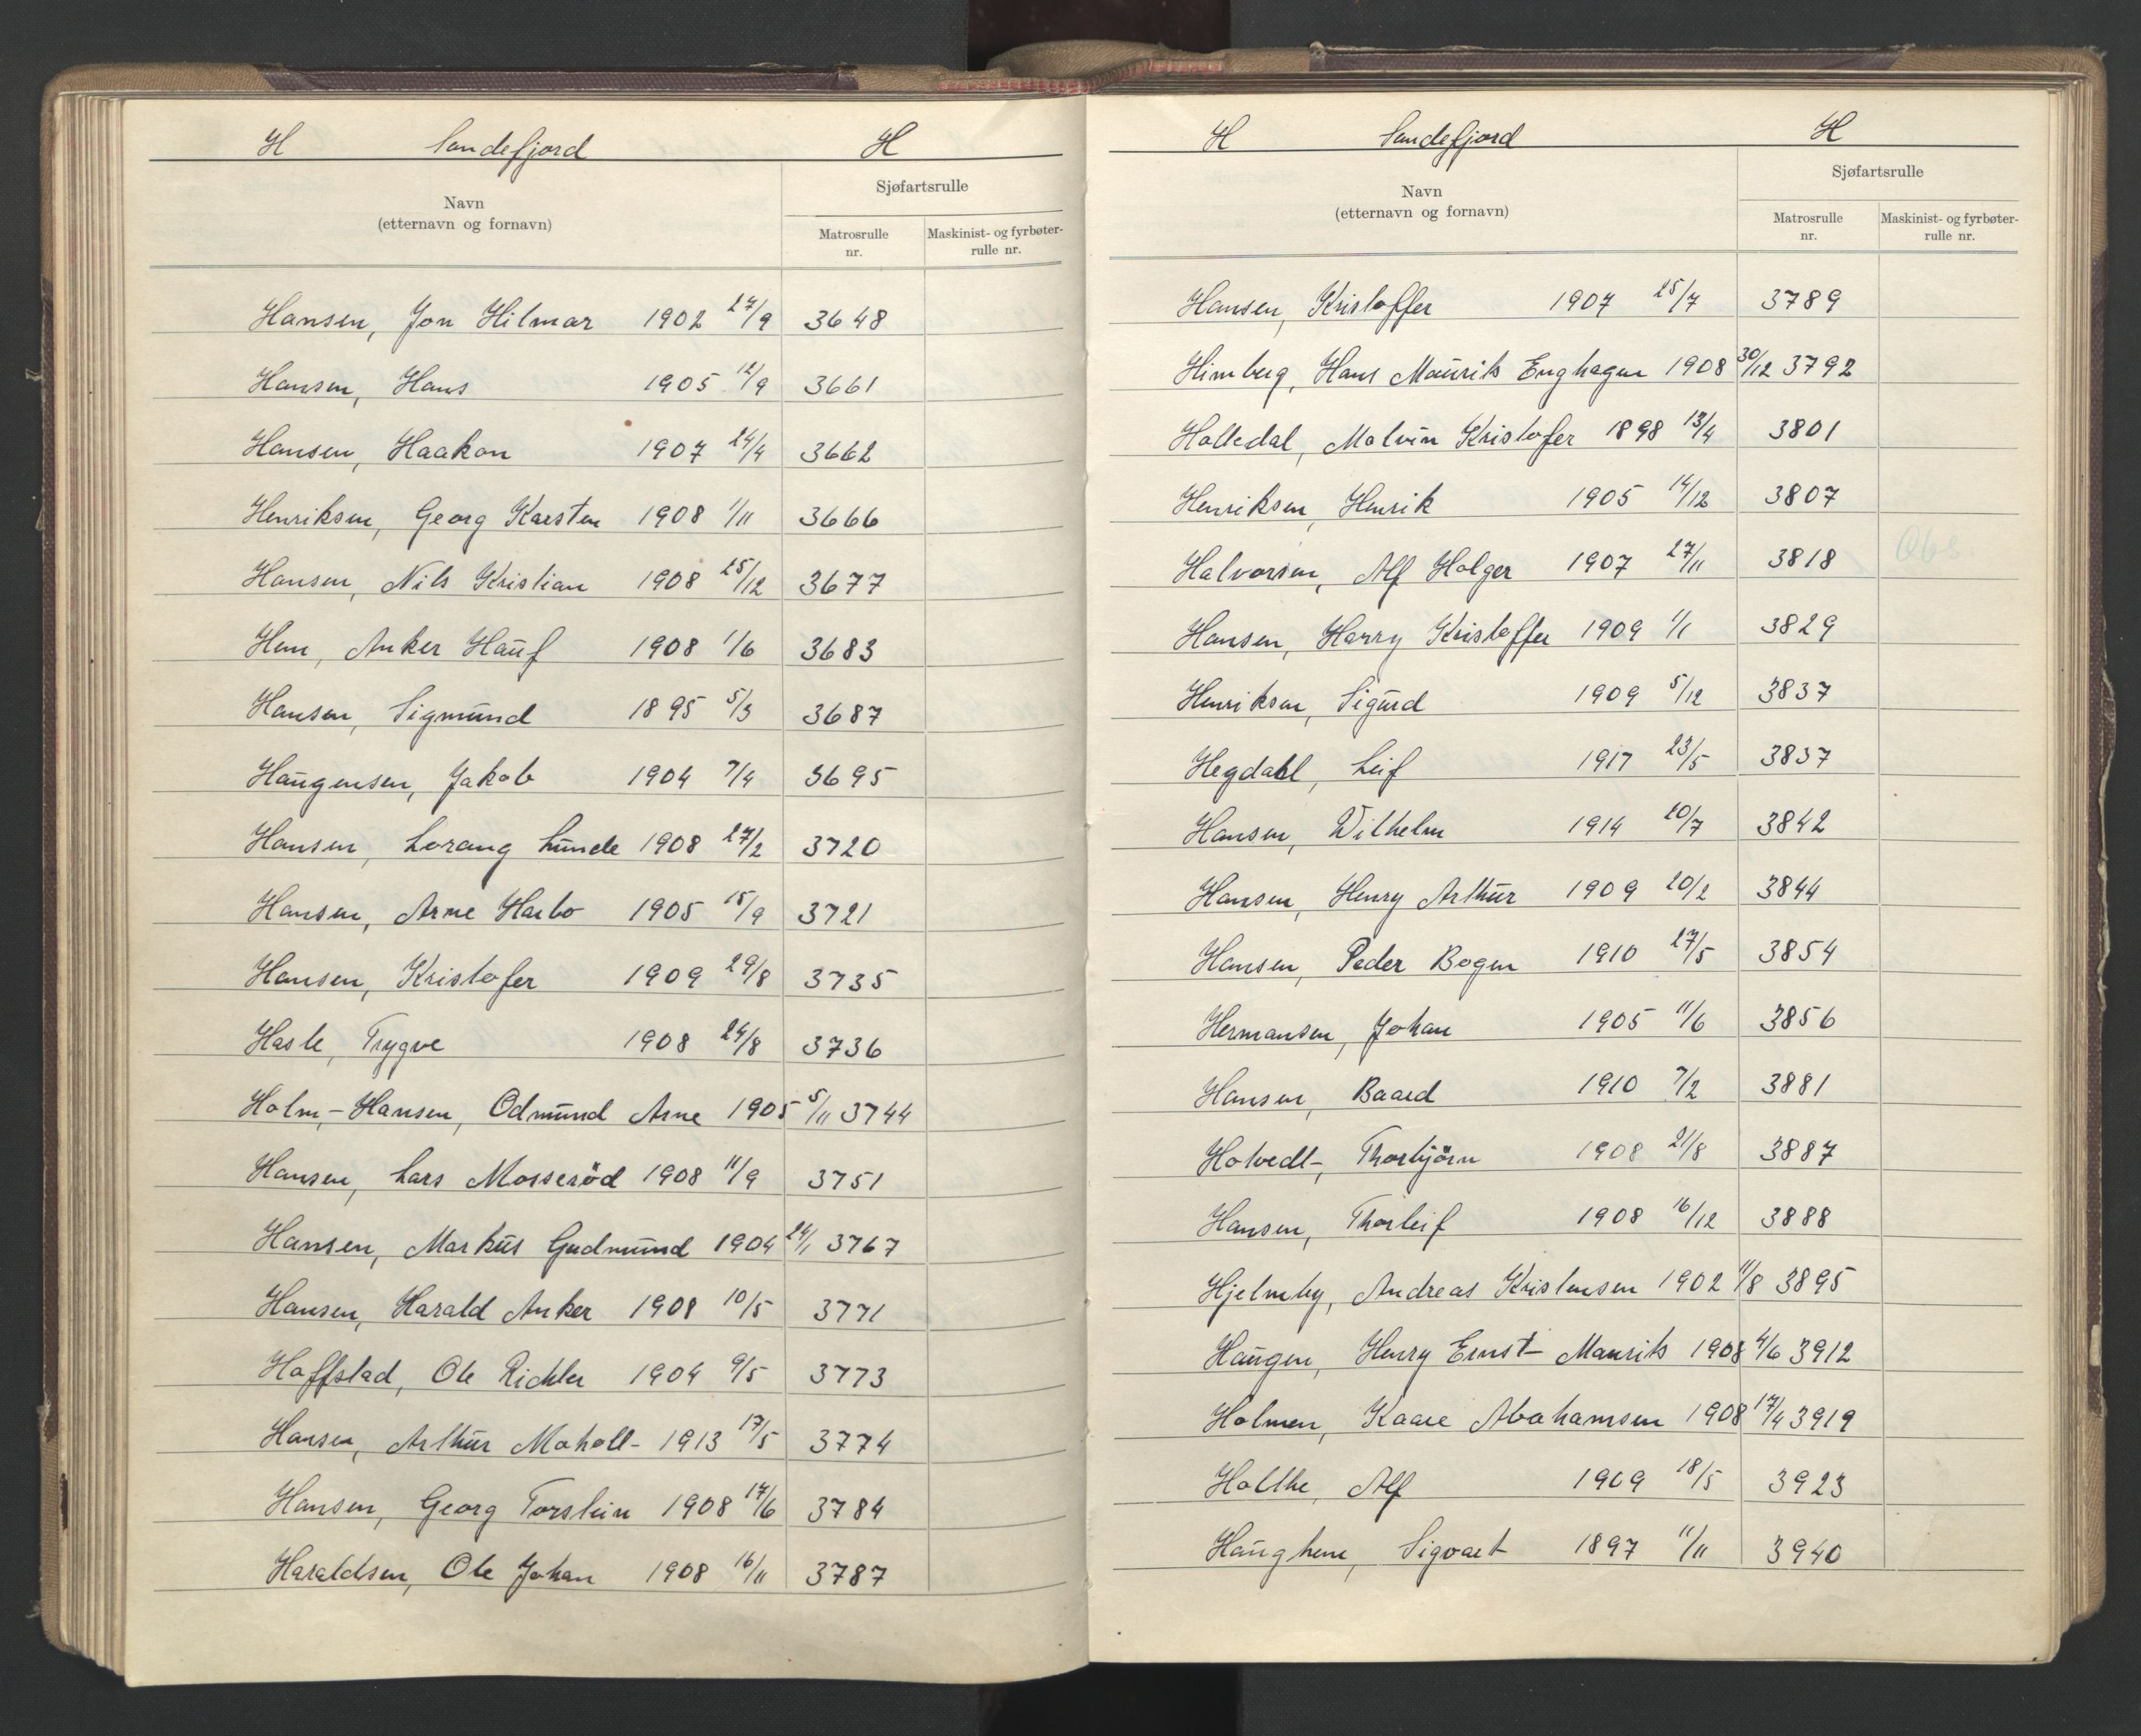 H Sandefjord H
Navn
(etternavn og fornavn)
Sjøfartsrulle
Matrosrulle nr.
Maskinist- og fyrbøter-rulle nr.
Hansen, Jon Hilmar 1902 27/9 3648
Hansen, Hans 1905 12/9 3661
Hansen, Haakon 1907 24/4 3662
Henriksen, Georg Karsten 1908 1/11 3666
Hansen, Nils Kristian 1908 25/12 3677
Hem, Anker Hauf 1908 1/6 3683
Hansen, Sigmund 1895 5/3 3687
Haugensen, Jakob 1904 7/4 3695
Hansen, Lorang Lunde 1908 27/2 3720
Hansen, Arne Harbo 1905 15/9 3721
Hansen, Kristofer 1909 29/8 3735
Hasle, Trygve 1908 24/8 3736
Holm-Hansen, Odmund Arne 1905 5/11 3744
Hansen, Lars Mosseröd 1908 11/9 3751
Hansen, Markus Gudmund 1904 24/1 3767
Hansen, Harald Anker 1908 10/5 3771
Haffstad, Ole Richter 1904 9/5 3773
Hansen, Arthur Moholt 1913 17/5 3774
Hansen, Georg Torstein 1908 17/6 3784
Haraldsen, Ole Johan 1908 16/11 3787
H Sandefjord H
Navn
(etternavn og fornavn)
Sjøfartsrulle
Matrosrulle nr.
Maskinist- og fyrbøter-rulle nr.
Hansen, Kristoffer 1907 25/7 3789
Himberg, Hans Maurits Enghagen 1908 30/12 3792
Holtedal, Malvin Kristofer 1898 13/4 3801
Henriksen, Henrik 1905 14/12 3807
Halvorsen, Alf Holger 1907 27/11 3818 Obs
Hansen, Harry Kristoffer 1909 1/1 3829
Henriksen, Sigurd 1909 5/12 3837
Hegdahl, Leif 1917 23/5 3837
Hansen, Wilhelm 1914 20/7 3842
Hansen, Henry Arthur 1909 20/2 3844
Hansen, Peder Bogen 1910 27/5 3854
Hermansen, Johan 1905 11/6 3856
Hansen, Baard 1910 7/2 3881
Hotvedt, Thorbjörn 1908 21/8 3887
Hansen, Thorleif 1908 16/12 3888
Hjelmby, Andreas Kristensen 1902 11/8 3895
Haugen, Henry Ernst Maurits 1908 4/6 3912
Holmen, Kaare Abahamsen 1908 17/4 3919
Holthe, Alf 1909 18/5 3923
Haughem, Sigvart 1897 11/11 3940